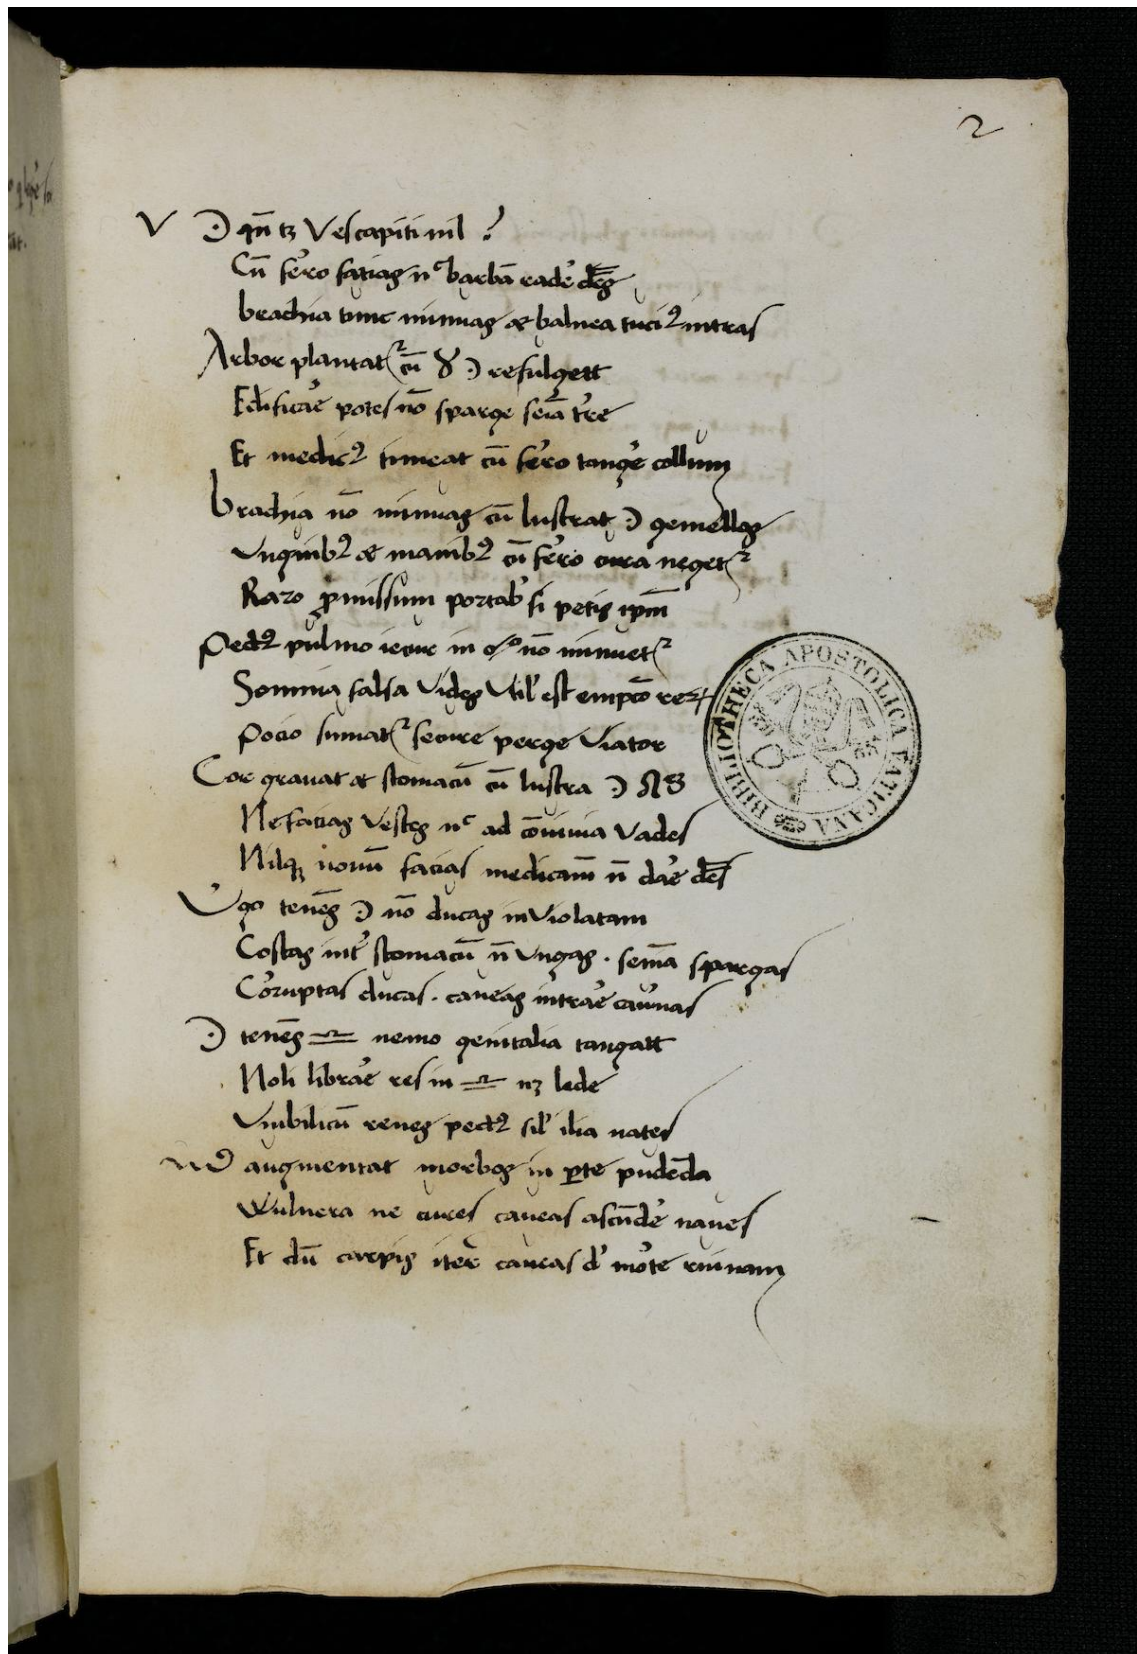 2
V ☽ qn̄ tʒ Vescapiti nil ?
Cū fe᷒ro facias nͨ barbā rade᷒ dēs
brachia tunc minuas & balnea tuciꝰ intras
Arbor plantatᷣ cū ♉ ☽ refulgett
Edificar̄e potes nō sparge seīa tr̄e
Et medicꝰ timeat cū fe᷒ro tange᷒ collum
brachia nō minuas cū lustrat ☽ gemellos
Vnguibꝰ & manibꝰ cū fe᷒ro cura negetᷣ
Raro ꝓmissum portab᷒ si petis ipm̄
Pectꝰ pulmo iecur in ♋ nō minuetᷣ
Somnia falsa vides vtil᷒ est empco̅ reꝝ
Pocio sumatᷣ secure perge viator
Cor grauat & stomacū cū lustra ☽ ♌
Ne facias vestes nͨ ad cōuiuia vades
Nilqʒ nouū facias medicam̄ n̄ dar̄e dēs
V᷒go tenēs ☽ nō ducas inviolatam
Costas int᷒ stomacū n̄ vngas . sem̄a spargas
Co᷒ruptas ducas . caueas intrar̄e cau᷒nas
☽ tenēs ♎ nemo genitalia tangatt
Noli librar̄e res in ♎ nʒ lede
Vmbilicū renes pectꝰ sil᷒ ilia nates
♏ ☽ augmentat morbos in ꝑte pudēda
Wulnera ne cures caueas ascēde᷒ naues
Et dū carpis iter caueas d᷒ mōte ruinam
BIBLIOTHECA APOSTOLICA VATICANA